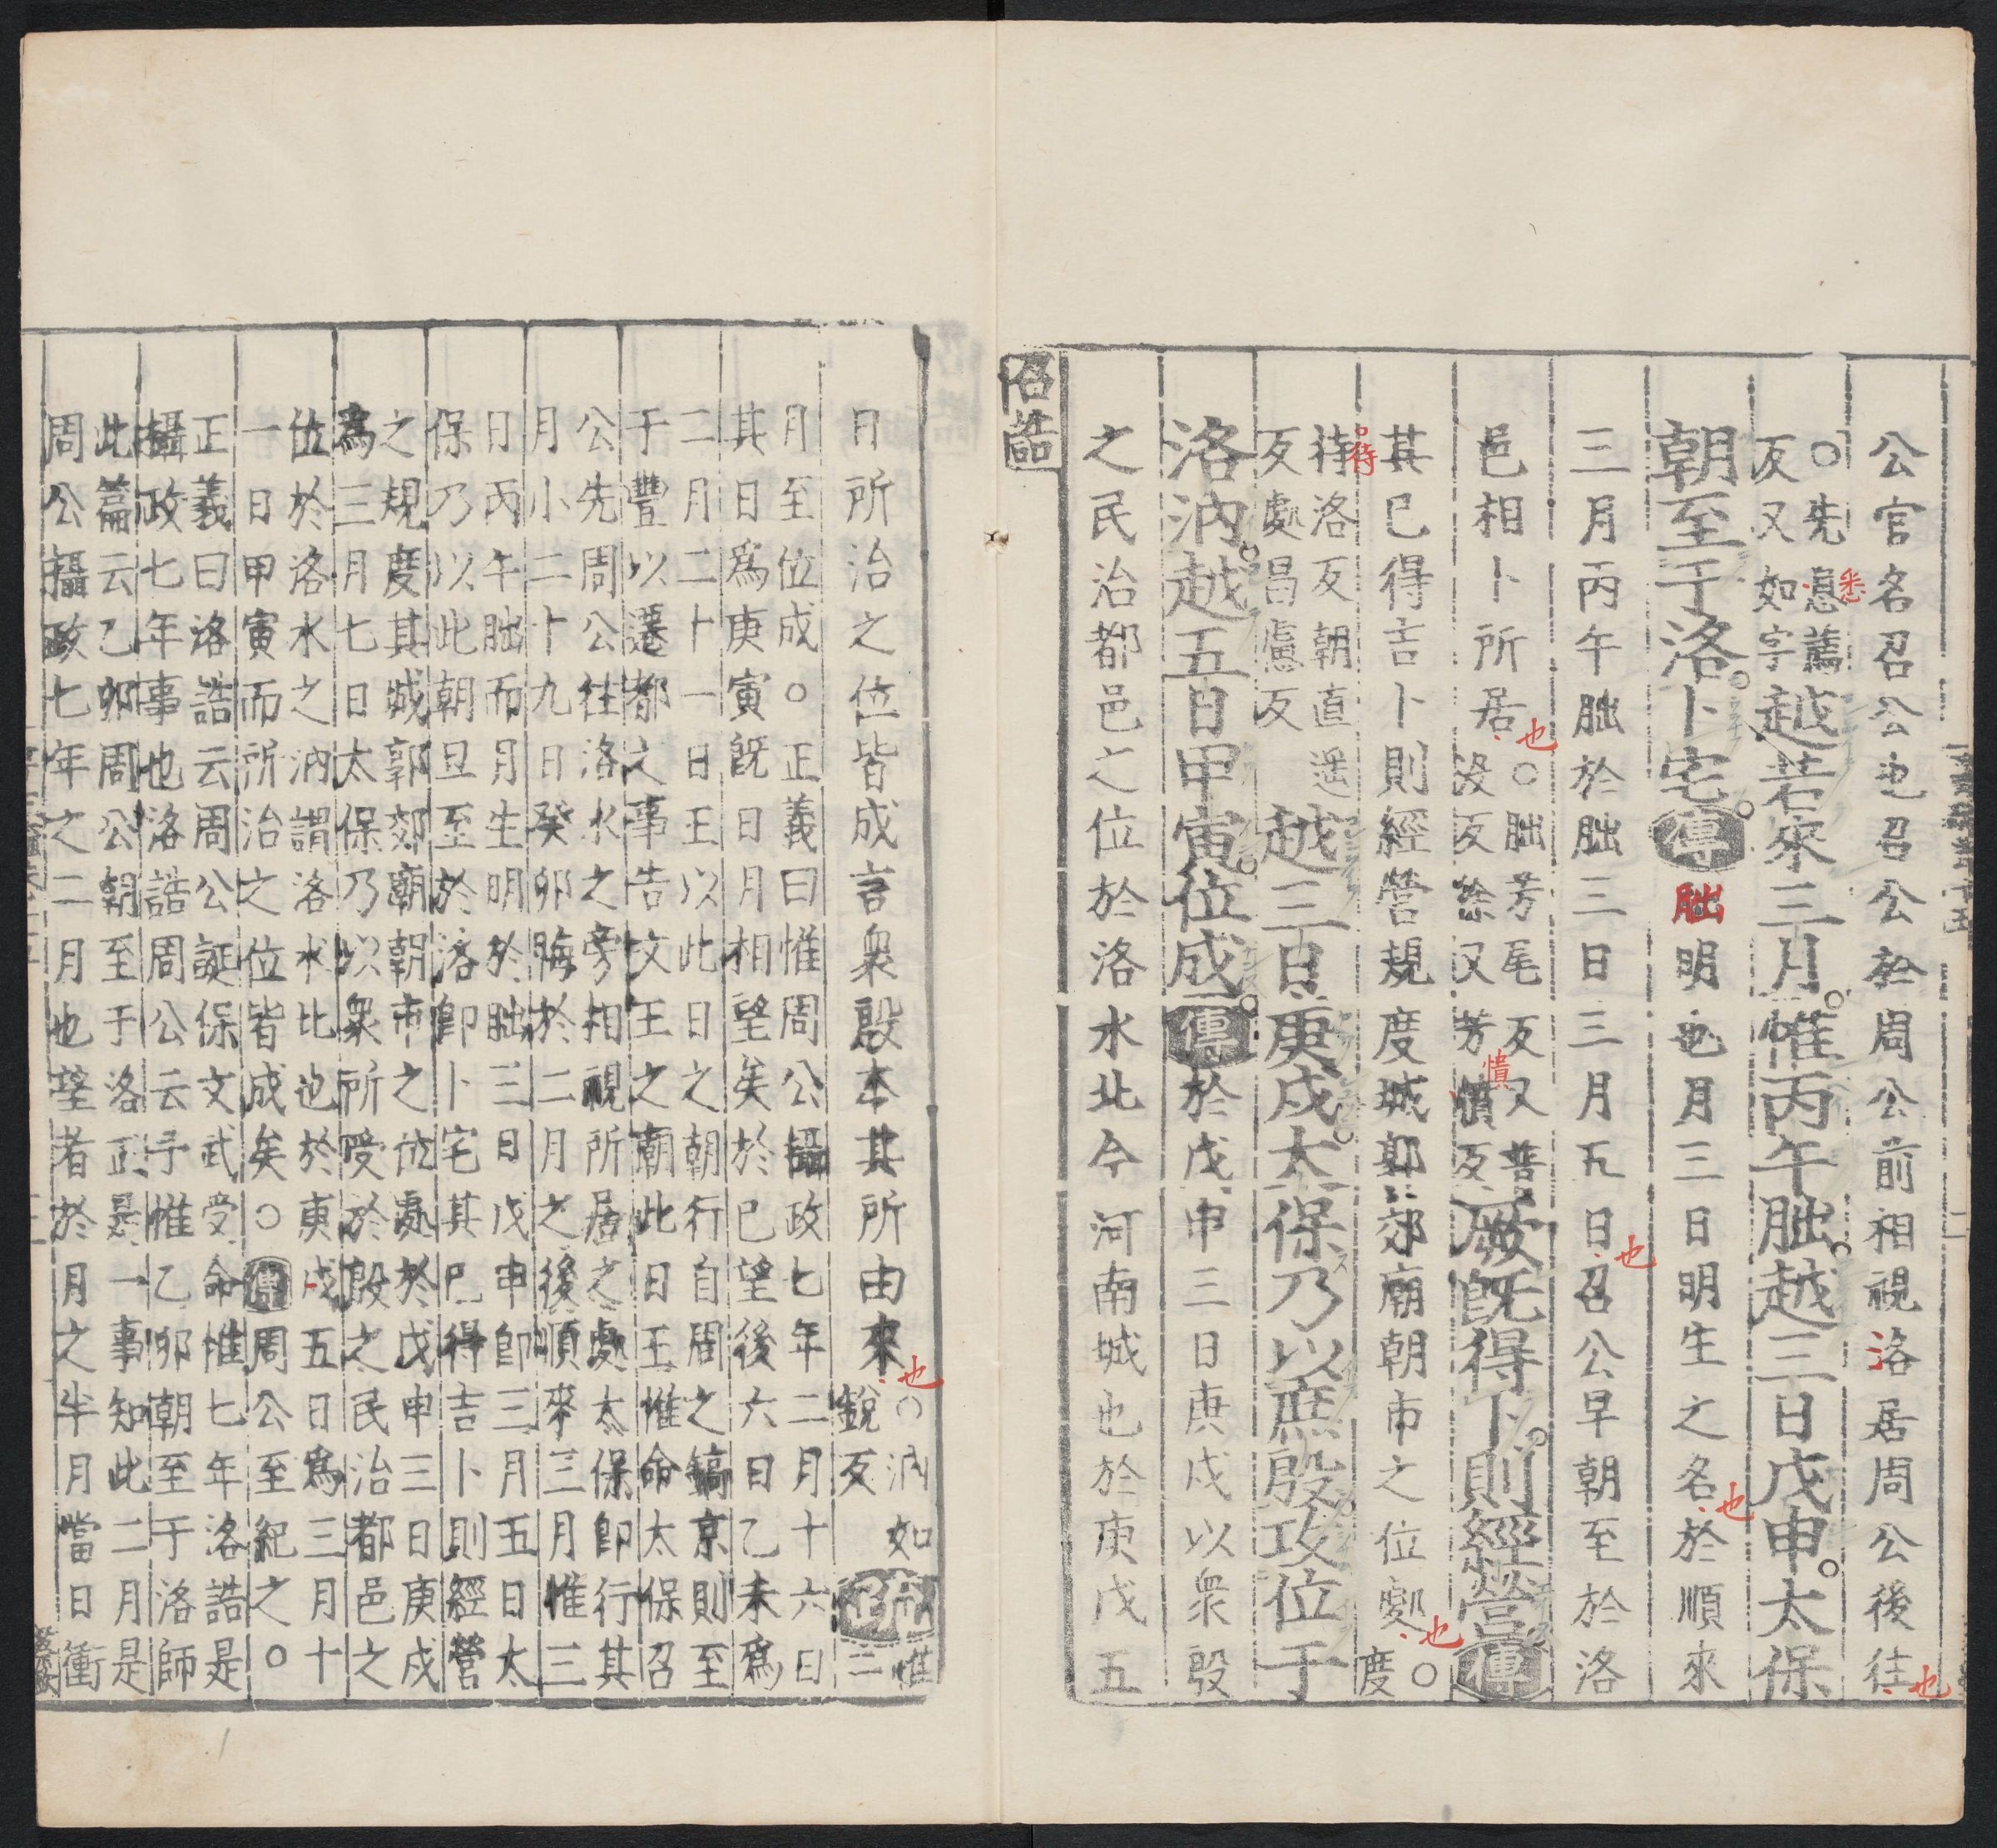 公官名召公也召公於周公前相視洛居周公後往也
○先悉薦
反又如字越若來三月惟丙午朏越三日戊申太保
朝至于洛卜宅傳朏明也月三日明生之名也於順來
三月丙午朏於朏三日三月五日也召公早朝至於洛
邑相卜所居也○朏芳尾反又普
沒反徐又芳憒反厥既得卜則經營傳
其已得吉卜則經營規度城郭郊廟朝市之位處也○度
待洛反朝直遥
反處昌慮反越三日庚戌太保乃以庶殷攻位于
洛汭越五日甲寅位成傳於戊申三日庚戌以衆殷
之民治都邑之位於洛水北今河南城也於庚戌五
召誥
日所治之位皆成言衆殷本其所由來也○汭如
銳反疏惟二
月至位成○正義曰惟周公攝政七年二月十六日
其日爲庚寅既日月相望矣於已望後六日乙未爲
二月二十一日王以此日之朝行自周之鎬京則至
于豐以遷都之事告文王之廟此日王惟命太保召
公先周公往洛水之旁相視所居之處太保即行其
月小二十九日癸卯晦於二月之後順來三月惟三
日丙午朏而月生明於朏三日戊申即三月五日太
保乃以此朝旦至於洛即卜宅其已得吉卜則經營
之規度其城郭郊廟朝市之位處於戊申三日庚戌
爲三月七日太保乃以衆所受於殷之民治都邑之
位於洛水之汭謂洛水北也於庚戌五日爲三月十
一日甲寅而所治之位皆成矣○傳周公至紀之○
正義曰洛誥云周公誕保文武受命惟七年洛誥是
攝政七年事也洛誥周公云予惟乙卯朝至于洛師
此篇云乙卯周公朝至于洛正是一事知此二月是
周公攝政七年之二月也望者於月之半月當日衝